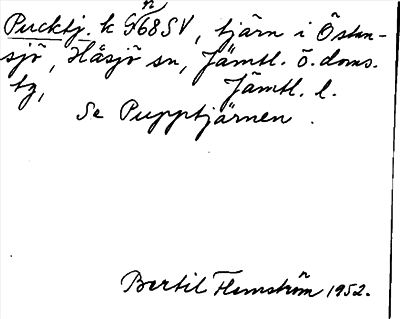 Pucktj. k G68SV, tjärn i Östan-
sjö, Håsjö sn, Jämtl. ö. doms.
tg, Jämtl. l.
Se Pupptjärnen.
Bertil Flemström 1952.